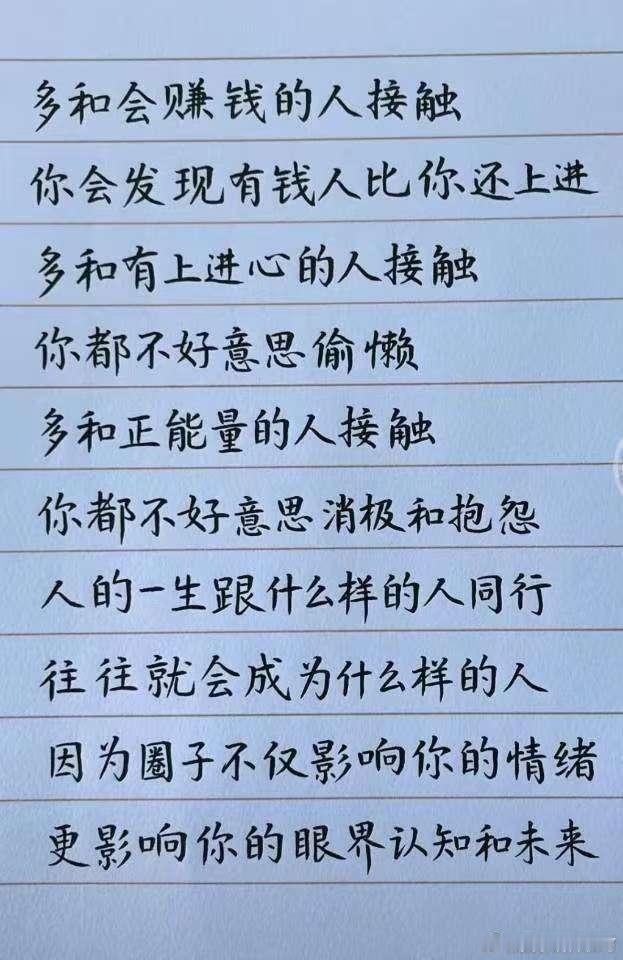 多和会赚钱的人接触
你会发现有钱人比你还上进
多和有上进心的人接触
你都不好意思偷懒
多和正能量的人接触
你都不好意思消极和抱怨
人的一生跟什么样的人同行
往往就会成为什么样的人
因为圈子不仅影响你的情绪
更影响你的眼界认知和未来